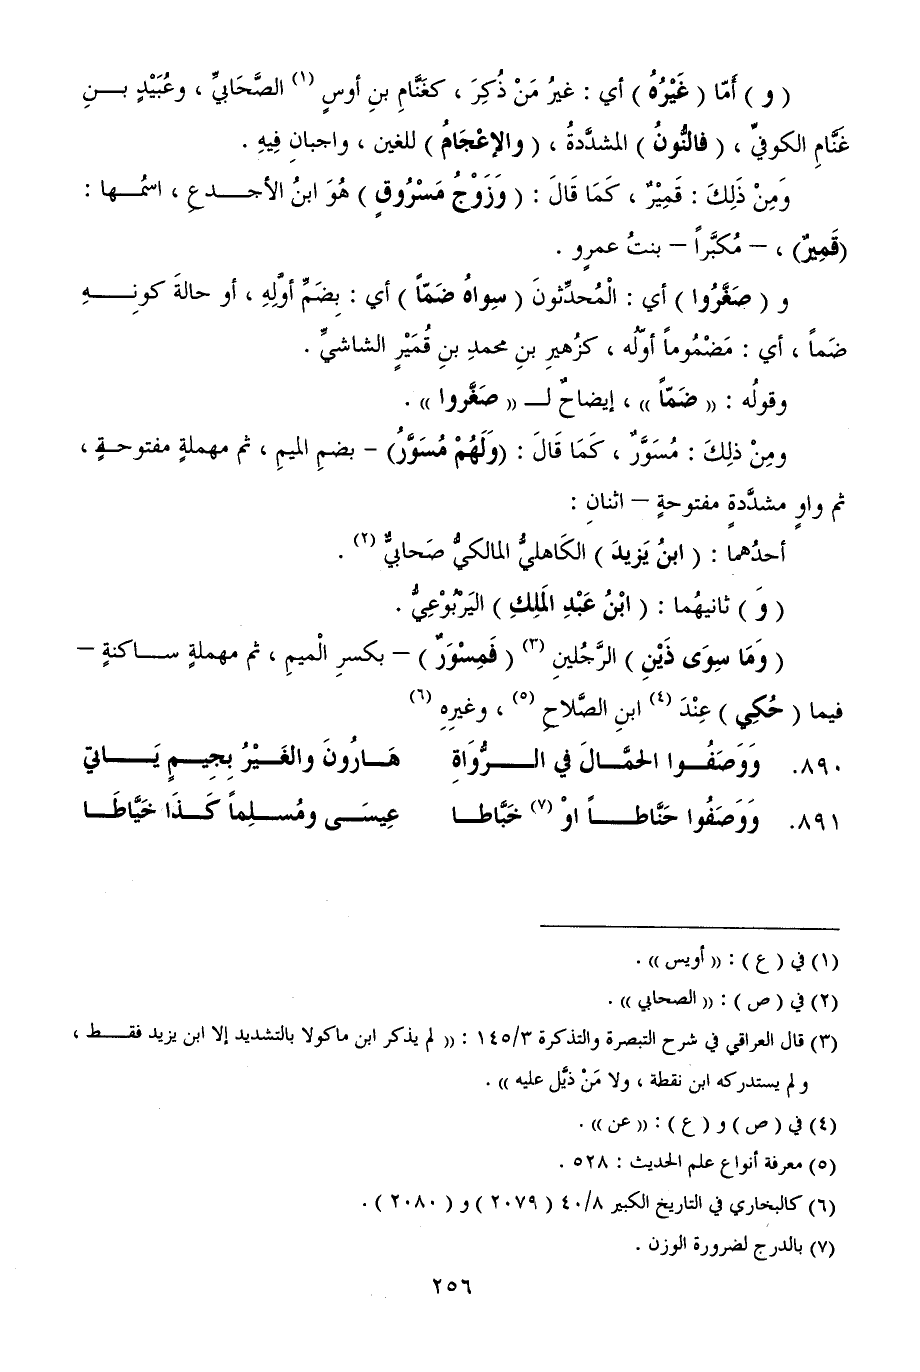 ( و ) أَمّا ( غَيْرُهُ ) أي : غيرُ مَنْ ذُكِرَ ، كغَنَّامِ بنِ أوسٍ (١) الصَّحَابيِّ ، وعُبَيْدِ بــنِ
غنَّامِ الكوفيِّ ، ( فالنُّونُ ) المشدَّدةُ ، ( والإعْجَامُ ) للغينِ ، واجبانِ فِيهِ .
وَمِنْ ذَلِكَ : قَمِيْرٌ ، كَمَا قَالَ : ( وَزَوْجُ مَسْرُوقٍ ) هُوَ ابنُ الأجــدعِ ، اسمُــها :
(قَمِيرٌ) ، – مُكبَّراً – بنتُ عمرٍو .
و ( صَغَّرُوا ) أي : الْمُحدِّثونَ ( سِواهُ ضَمّاً ) أي : بِضَمِّ أوَّلِهِ ، أو حالةَ كونِــهِ
ضَماً ، أي : مَضْمُوماً أوّلُه ، كزُهيرِ بنِ محمدِ بنِ قُمَيْرٍ الشاشيِّ .
وقولُه : (( ضَمّاً )) ، إيضاحٌ لــ (( صَغَّروا )) .
ومِنْ ذلِكَ : مُسَوَّرٌ ، كَمَا قَالَ : (وَلَهُمْ مُسَوَّرُ) – بضمِ الميمِ ، ثم مهملةٍ مفتوحــةٍ ،
ثم واوٍ مشدَّدةٍ مفتوحةٍ – اثنانِ :
أحدُهما : ( ابنُ يَزِيدَ ) الكَاهليُّ المالكيُّ صَحابيٌّ (٢) .
( وَ ) ثانيهُما : ( ابْنُ عَبْدِ الْمَلِكِ ) اليَرْبُوْعِيُّ .
( وَمَا سِوَى ذَيْنِ ) الرَّجُلينِ (٣) ( فَمِسْوَرٌ ) – بكسرِ الْميمِ ، ثم مهملةٍ ســاكنةٍ –
فيما ( حُكِي ) عِنْدَ (٤) ابنِ الصَّلاحِ (٥) ، وغيرِهِ (٦)
٨٩٠. وَوَصَفُــوا الحَمَّــالَ في الــرُّوَاةِ هَــارُونَ والغَيْــرُ بِجِيــمٍ يَــاتيْ
٨٩١. وَوَصَفُوا حَنَّاطــاً اوْ (٧) خَبَّاطــا عِيسَــى ومُسْــلِماً كَــذَا خَيَّاطَــا
(١) في ( ع ) : (( أويس )) .
(٢) في ( ص ) : (( الصحابي )) .
(٣) قال العراقي في شرح التبصرة والتذكرة ١٤٥/٣ : (( لم يذكر ابن ماكولا بالتشديد إلا ابن يزيد فقــط ،
ولم يستدركه ابن نقطة ، ولا مَنْ ذيَّل عليه )) .
(٤) في ( ص ) و ( ع ) : (( عن )) .
(٥) معرفة أنواع علم الحديث : ٥٢٨ .
(٦) كالبخاري في التاريخ الكبير ٤٠/٨ ( ٢٠٧٩ ) و ( ٢٠٨٠ ) .
(٧) بالدرج لضرورة الوزن .
٢٥٦